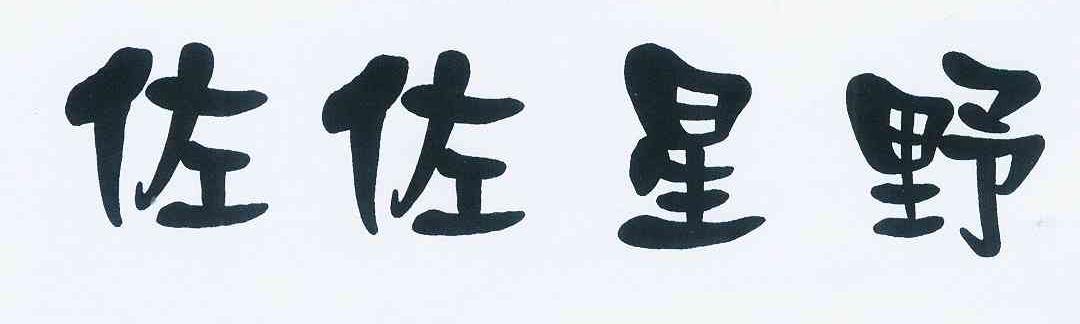 佐佐星野